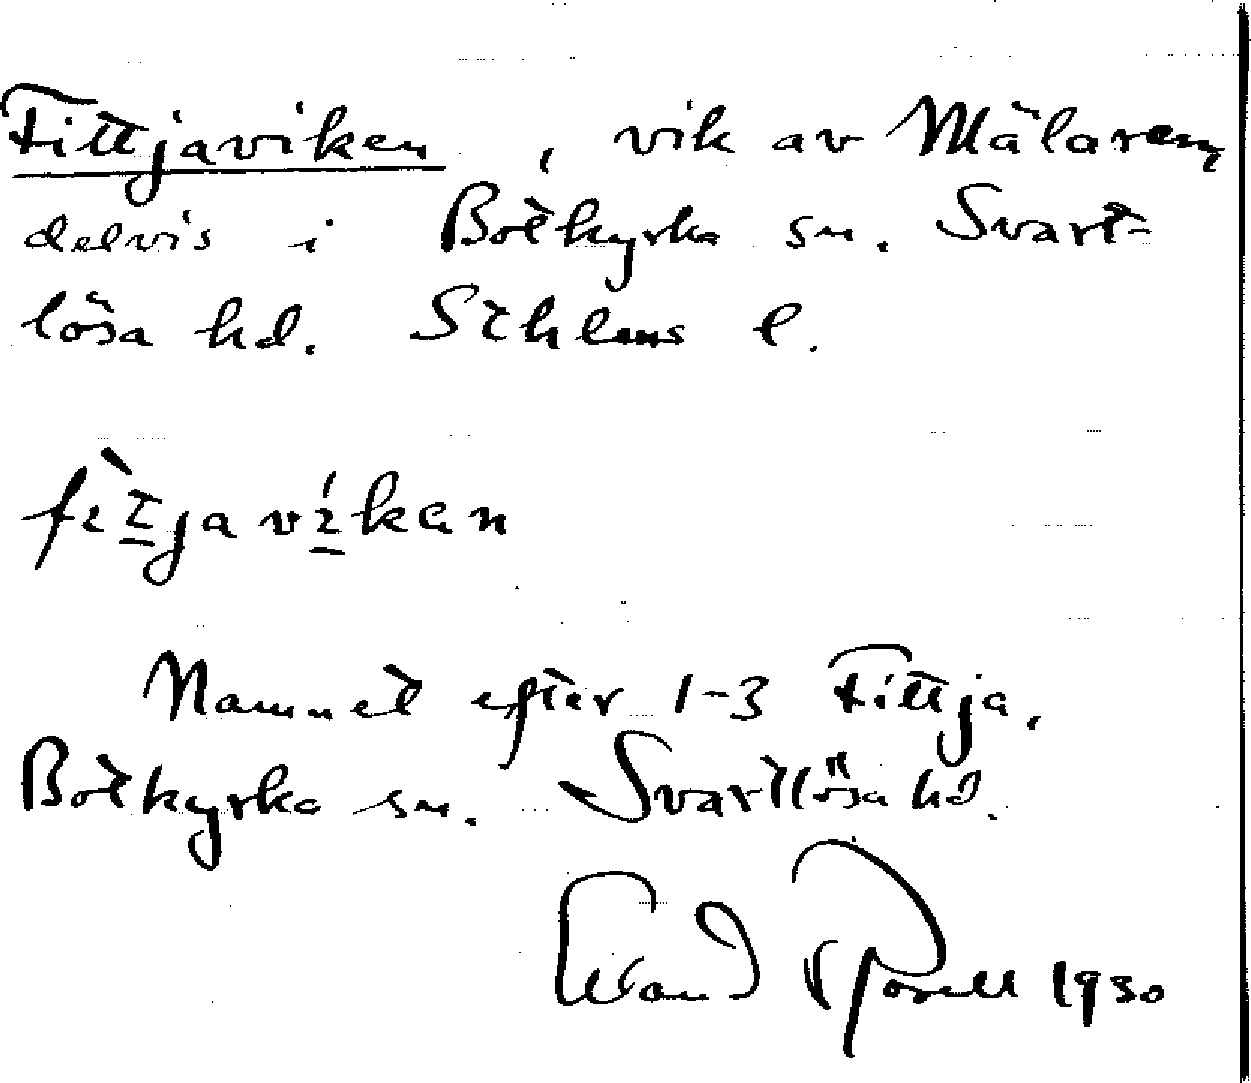 Fittjaviken, vik av Mälaren,
delvis i Botkyrka sn. Svart-
lösa hd. Sthlms l.
fìtjavíkan
Namnet efter 1-3 Fittja,
Botkyrka sn. Svartlösa hd.
1930